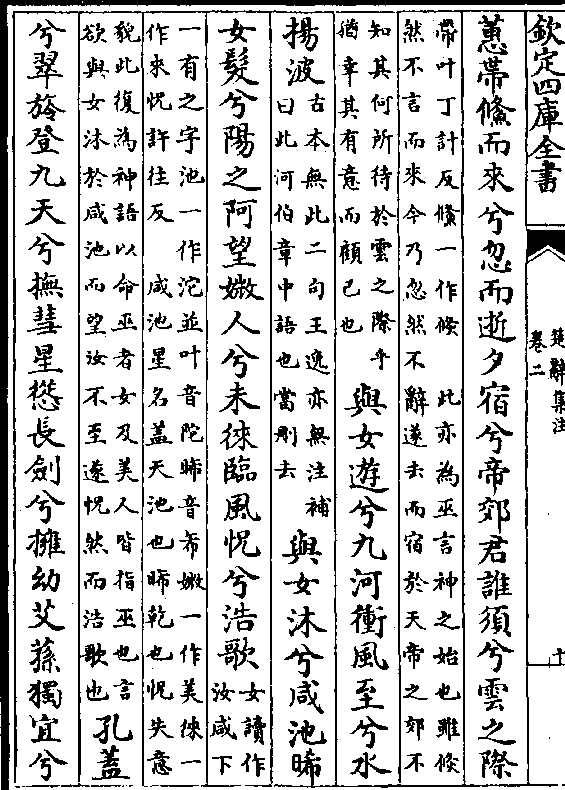 欽定四庫全書
楚辭集注
卷二
十
蕙帶儵而來兮忽而逝夕宿兮帝郊君誰須兮雲之際
帶叶丁計反儵一作倐 此亦為巫言神之始也雖倐
然不言而來今乃忽然不辭遂去而宿於天帝之郊不
知其何所待於雲之際乎
猶幸其有意而顧己也
與女遊兮九河衝風至兮水
揚波
古本無此二句王逸亦無注補
曰此河伯章中語也當刪去
與女沐兮咸池晞
女髮兮陽之阿望媺人兮未徠臨風怳兮浩歌
女讀作
汝咸下
一有之字池一作沱並叶音陀晞音希媺一作美徠一
作來怳許往反 咸池星名蓋天池也晞乾也怳失意
貌此復為神語以命巫者女及美人皆指巫也言
欲與女沐於咸池而望汝不至遂怳然而浩歌也
孔蓋
兮翠旍登九天兮撫彗星慫長劍兮擁幼艾蓀獨宜兮